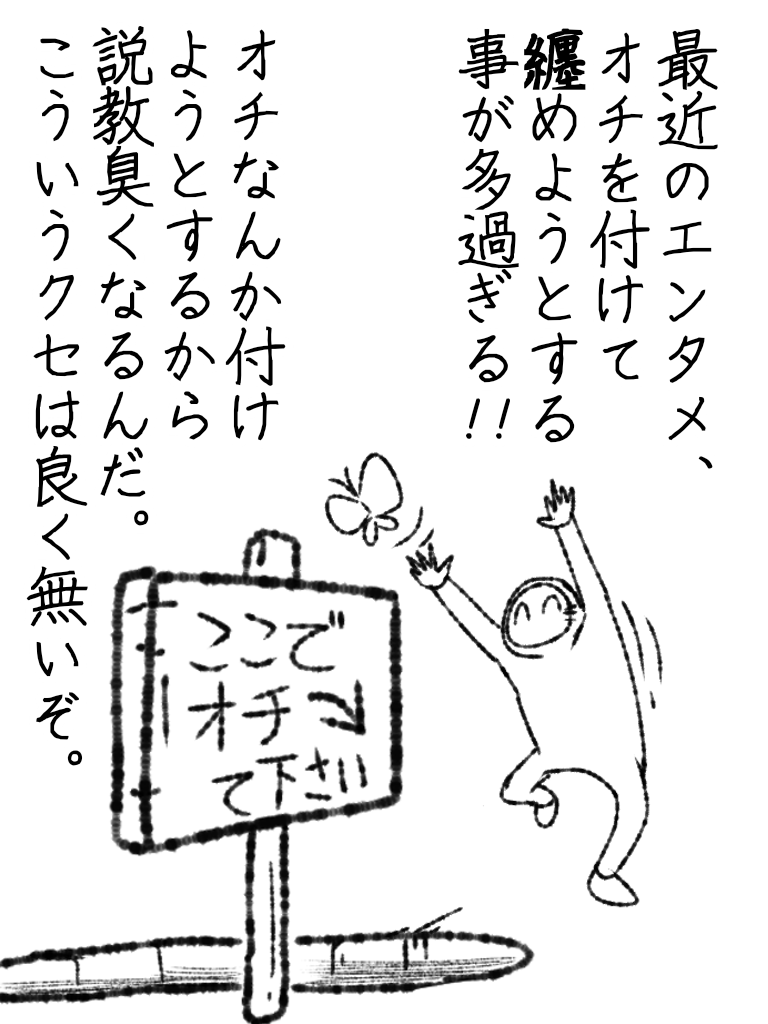 最近のエンタメ、
オチを付けて
纏めようとする
事が多過ぎる!!
オチなんか付け
ようとするから
説教臭くなるんだ。
こういうクセは良く無いぞ。
ここで
オチ
て下さい